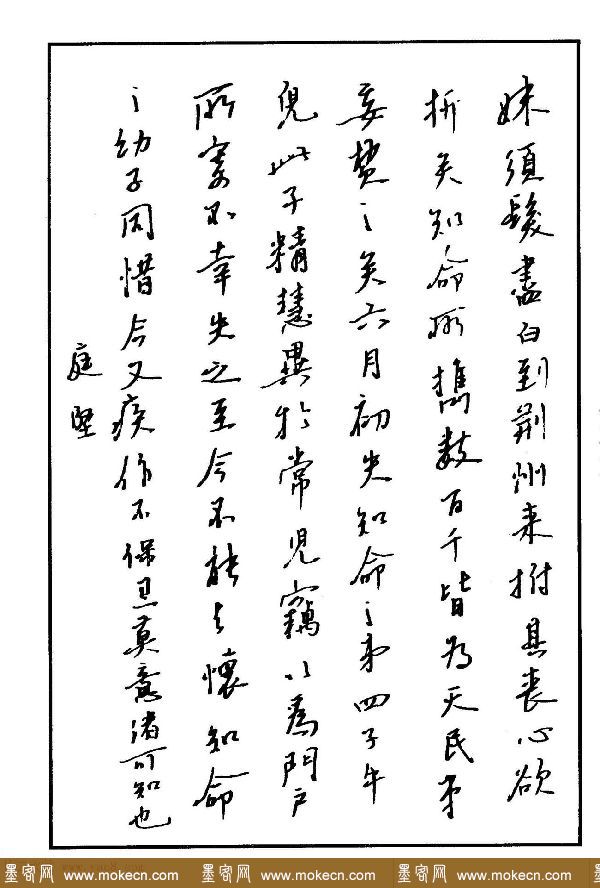 妹須髮盡白到荆州来拊其丧心欲
折矣知命所携数百千皆为天民弟
妄费之矣六月初失知命之弟四子牛
兒此子精慧異於常児竊以為門戶
所寄不幸失之至今不能去懷知命
之幼子同惜今又疾作不保旦莫意渚可知也
庭堅
墨客网 www.mokecn.com 墨客网 www.mokecn.com 墨客网 www.mokecn.com